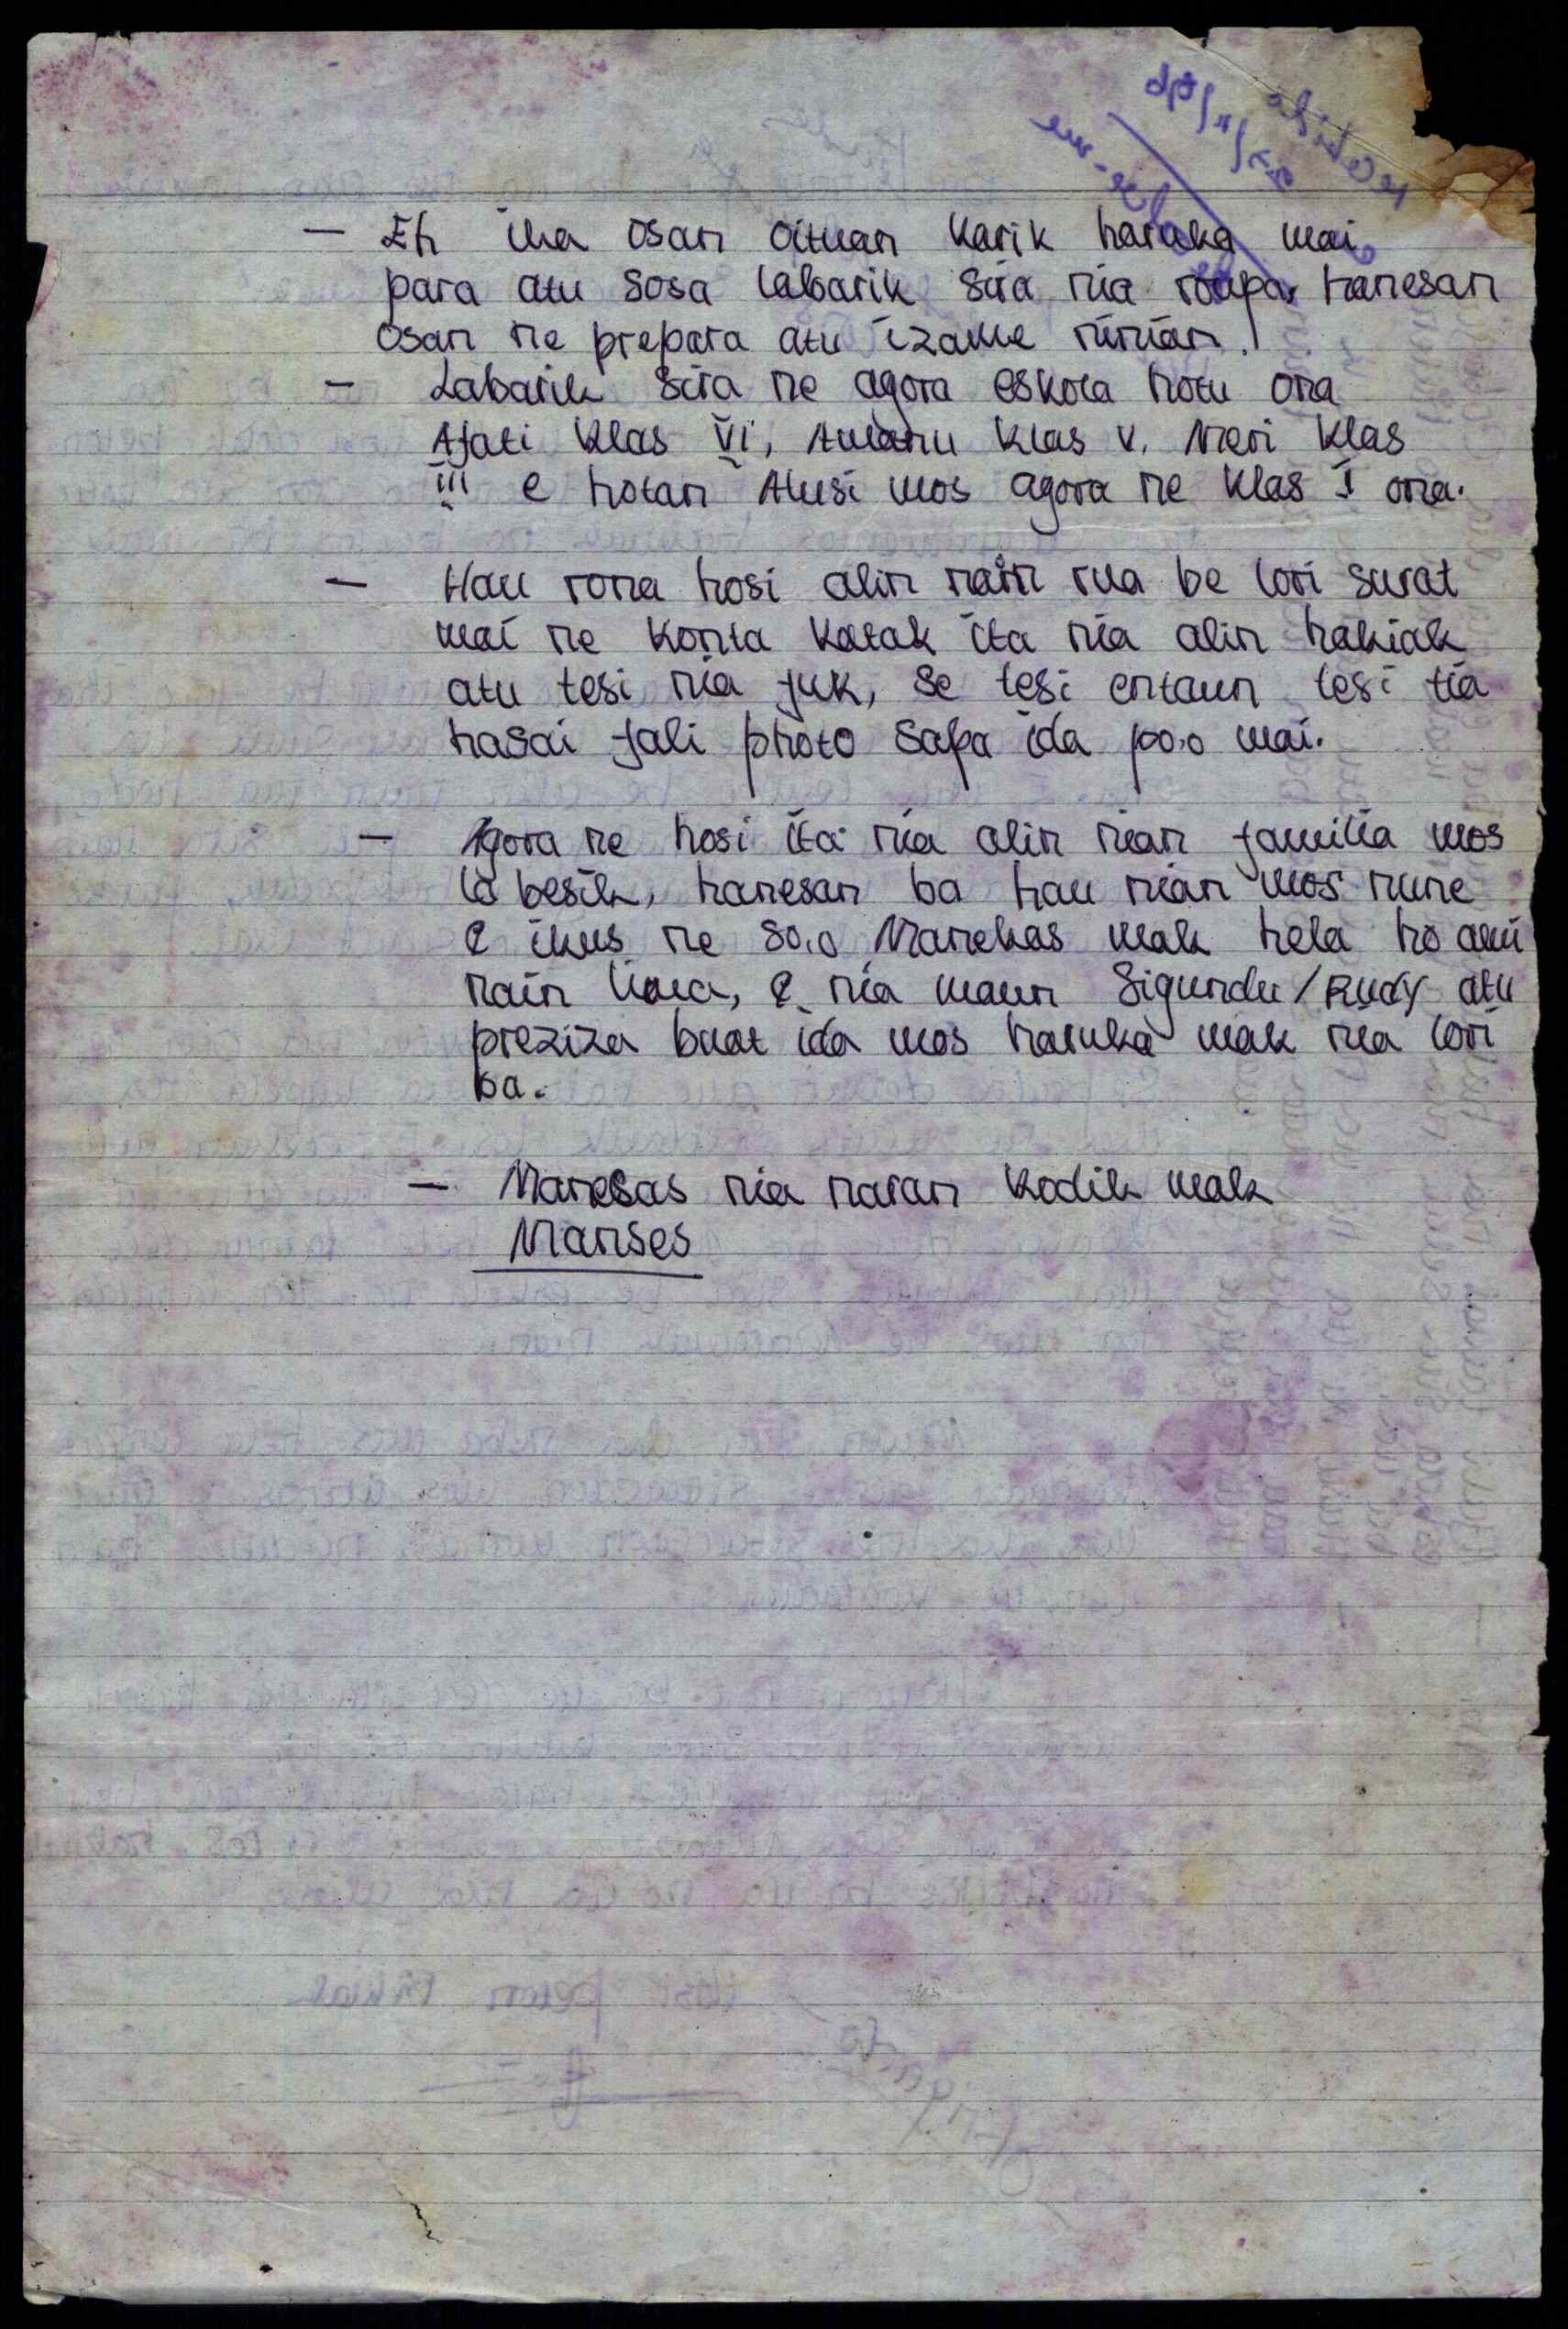 - Eh iha osan oituan karik haruka mai
para atu sosa labarik sira nia roupa, hanesan
osan ne prepara atu izame ninian.
- Labarik sira ne agora eskola hotu ona
Afati klas VI, klas V. Meri klas
III e hotan Atusi mos agora ne klas I ona.
- Hau rona hosi alin nain rua be lori surat
mai ne konta katak ita nia alin hakiak
atu tesi nia fuk, se tesi entaun tesi tia
hasai fali photo safa ida mai.
- Agora ne hosi ita nia alin nian familia mos
la besik, hanesan ba hau nian mos nune
e ikus ne Manekas mak hela ho ami
nain lima, e nia maun Sigundu/Rudy atu
preziza buat ida mos haruka mak nia lori
ba.
- Manekas nia naran kodik mak
Manses